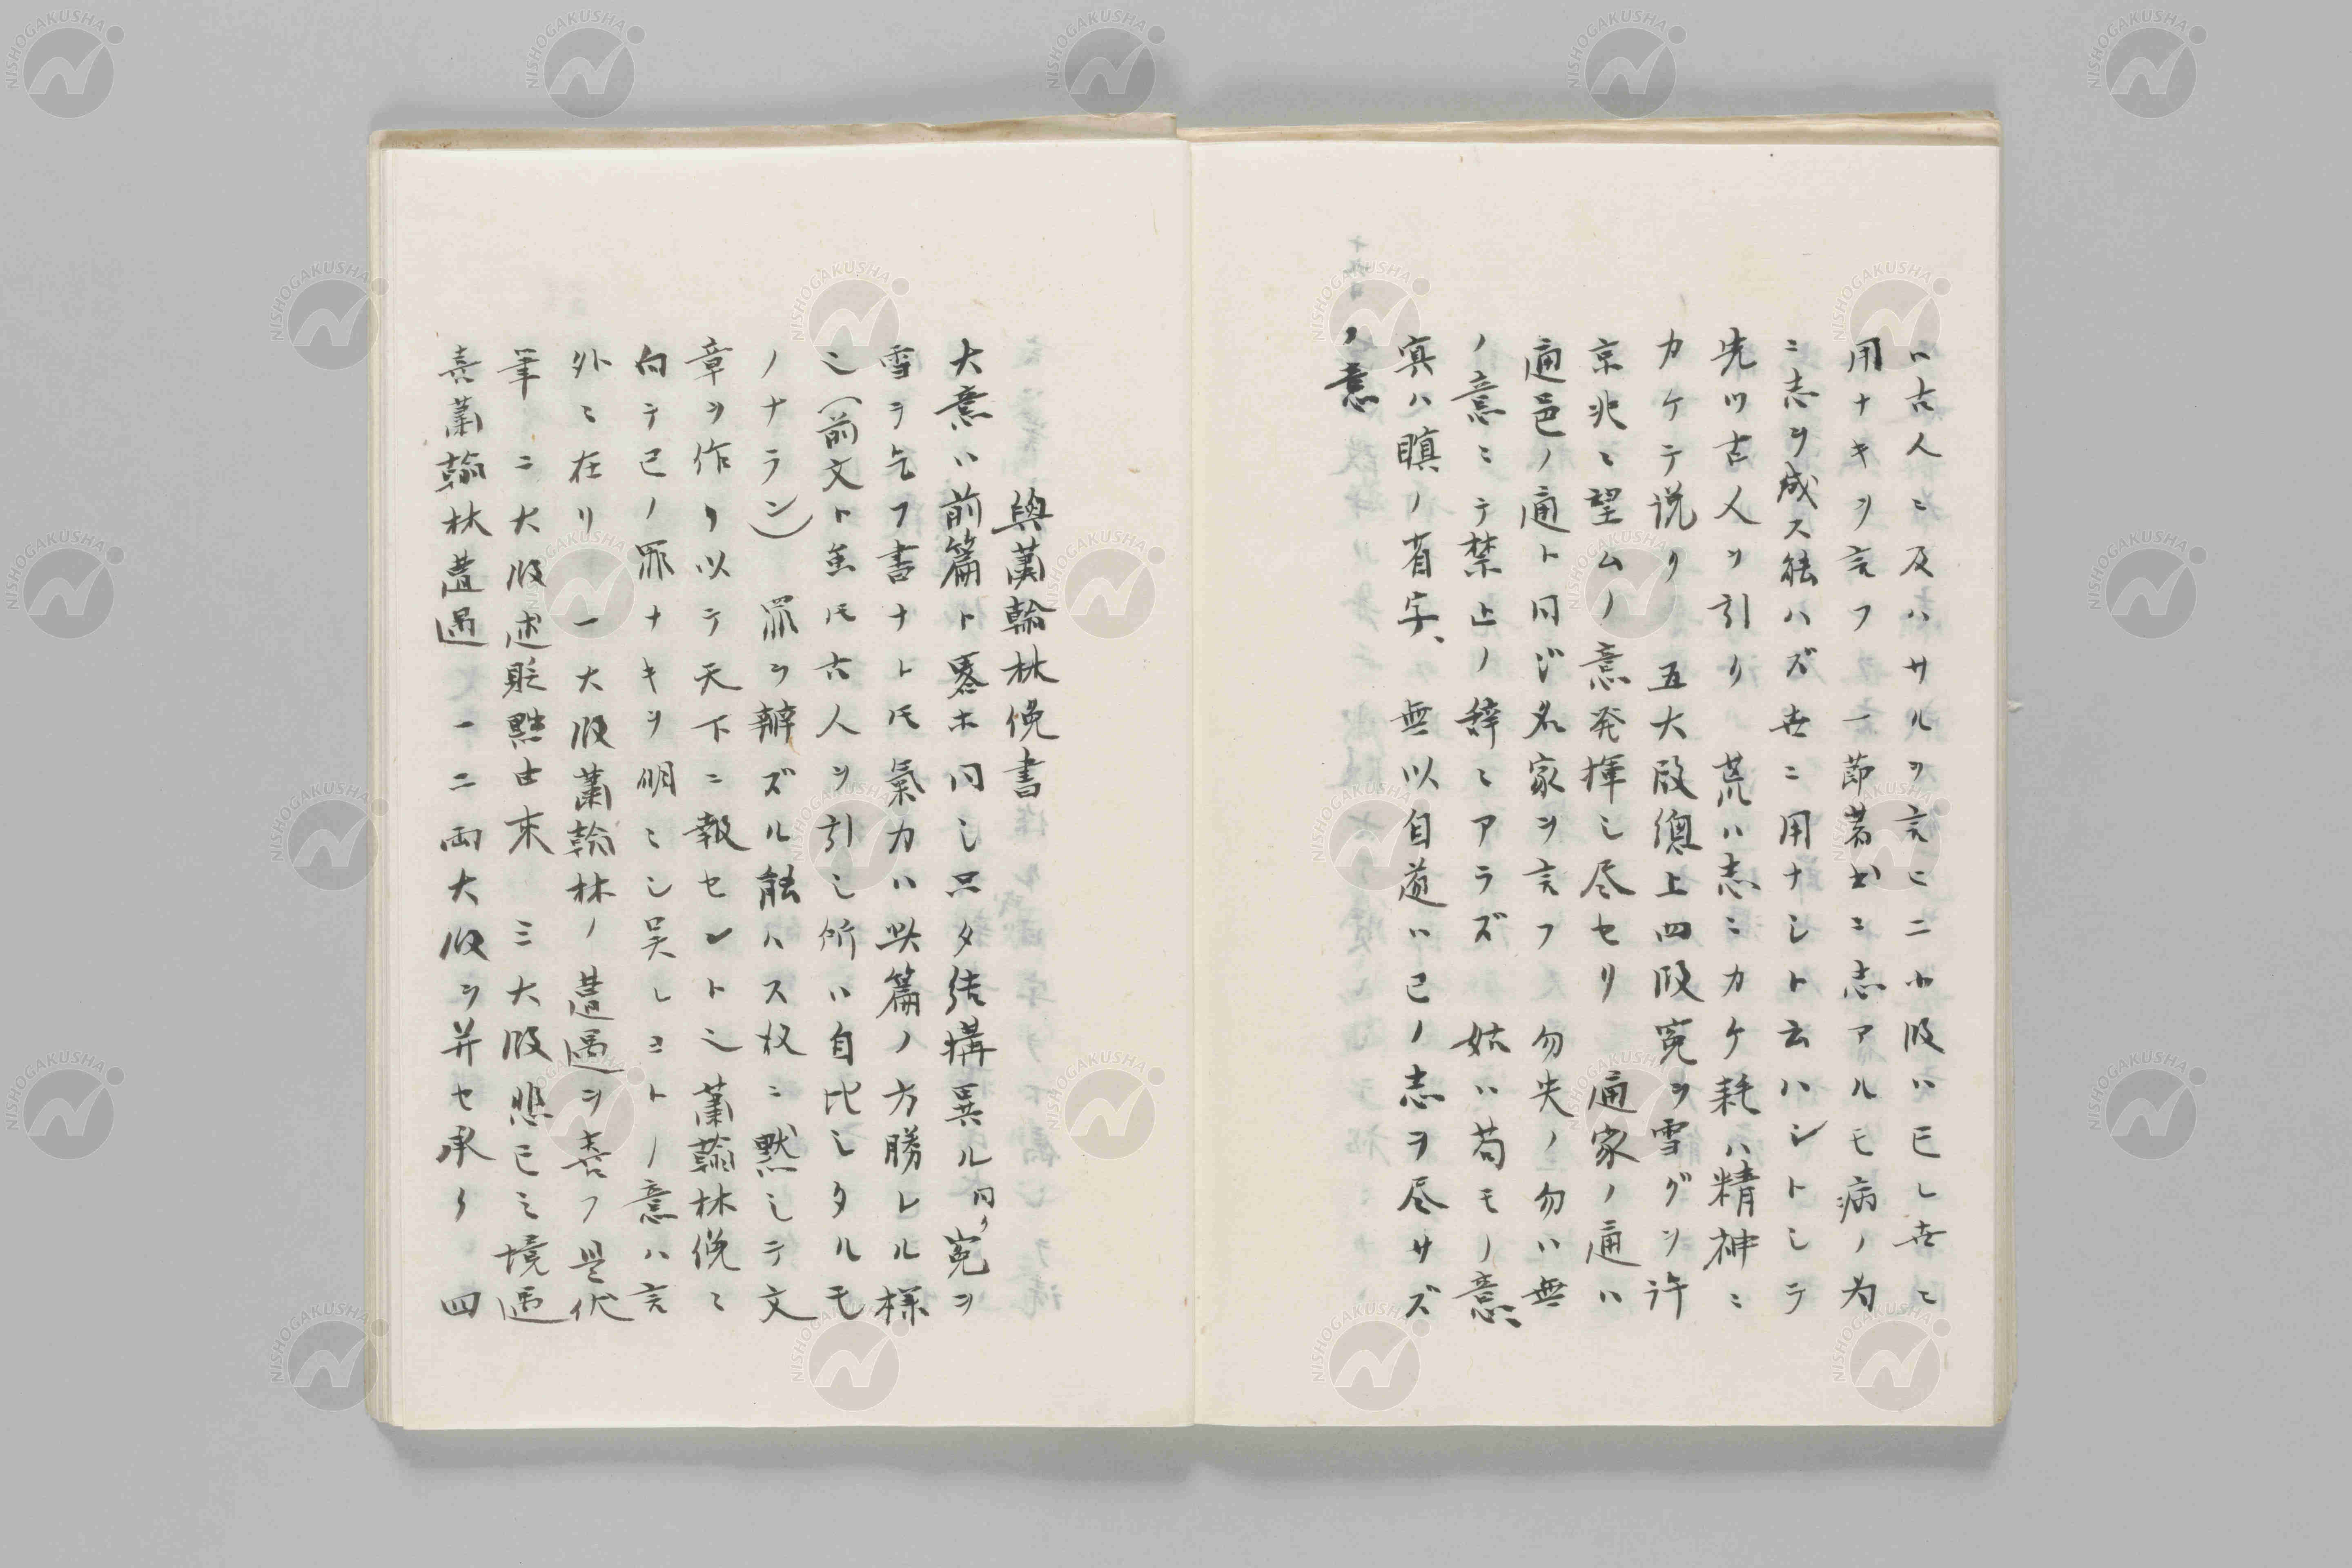 ハ古人ニ及ハサルヲ言ヒ二小段ハ已レ世ニ
用ナキヲ言フ一節著書ニ志アルモ病ノ為
ニ志ヲ成ス能ハズ世ニ用ナシト云ハントシテ
先ツ古人ヲ引リ 荒ハ志ニカケ耗ハ精神ニ
カケテ説リ 五大段總上四段冤ヲ雪グヲ許
京兆ニ望ムノ意発揮し尽セリ 通家ノ通ハ
通邑ノ通ト同ジ名家ヲ言フ 勿失ノ勿ハ無
ノ意ニテ禁止ノ辞ニアラズ 姑ハ苟モノ意、
寘ハ瞋ノ省字、 無以自道ハ已ノ志ヲ尽サズ
ノ意
與蕭翰林俛書
大意ハ前篇ト畧ホ同し只タ結構異ル同ク冤ヲ
雪ヲ乞フ書ナトモ氣力ハ此篇ノ方勝レル様
也(前文ト雖モ古人ヲ引し所ハ自比しタルモ
ノナラン) 罪ヲ辯ズル能ハス故ニ黙しテ文
章ヲ作リ以テ天下ニ報セントし蕭翰林俛ニ
向テ已ノ罪ナキヲ明ニし呉レヨトノ意ハ言
外ニ在リ 一大段蕭翰林ノ遭遇ヲ喜フ是伏
筆 二大段述貶黜由来 三大段悲已之境遇
喜蕭翰林遭遇 一二両大段ヲ并セ承ク 四
NISHOGAKUSHA